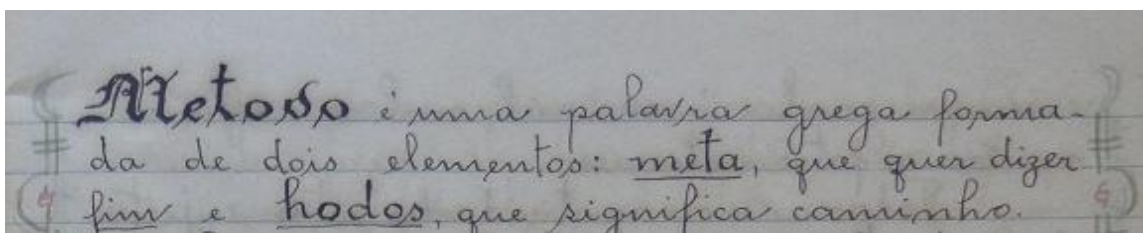 Metodo é uma palavra grega forma-
da de dois elementos: meta, que quer dizer
fim e hodos, que significa caminho.